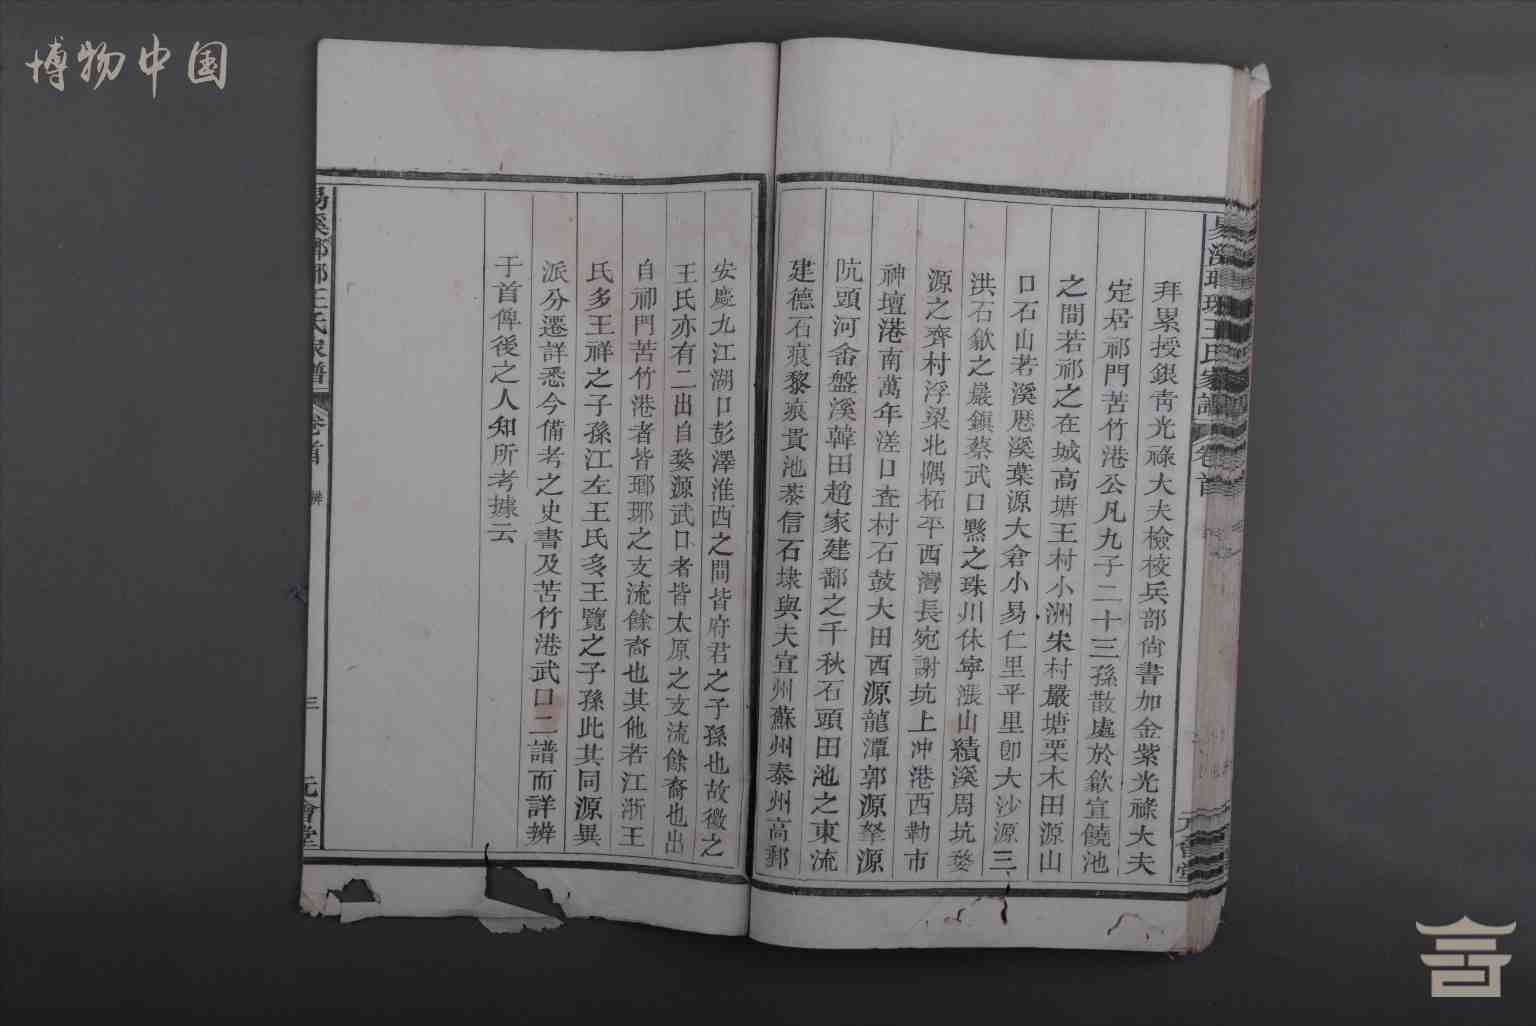 博物中国
易溪瑯琊王氏家譜 卷首
拜累授銀青光祿大夫檢校兵部尚書加金紫光祿大夫
定居祁門苦竹港公凡九子二十三孫散處於歙宣饒池
之間若祁之在城高塘王村小洲朱村嚴塘栗木田源山
口石山若溪厯溪葉源大倉小易仁里平里卽大沙源三
洪石歙之巖鎭蔡武口黟之珠川休寧漲山績溪周坑婺
源之齊村浮梁北隅柘平西灣長宛謝坑上冲港西勒市
神壇港南萬年溠口查村石鼓大田西源龍潭郭源拏源
阬頭河畲盤溪韓田趙家建鄱之千秋石頭田池之東流
建德石痕黎痕貴池泰信石埭與夫宣州蘇州泰州高郵
安慶九江湖口彭澤淮西之間皆府君之子孫也故徵之
王氏亦有二出自婺源武口者皆太原之支流餘裔也出
自祁門苦竹港者皆瑯琊之支流餘裔也其他若江浙王
氏多王祥之子孫江左王氏多王覽之子孫此其同源異
派分遷詳悉今備考之史書及苦竹港武口二譜而詳辨
于首俾後之人知所考據云
易溪瑯琊王氏家譜 卷首 三 元會堂